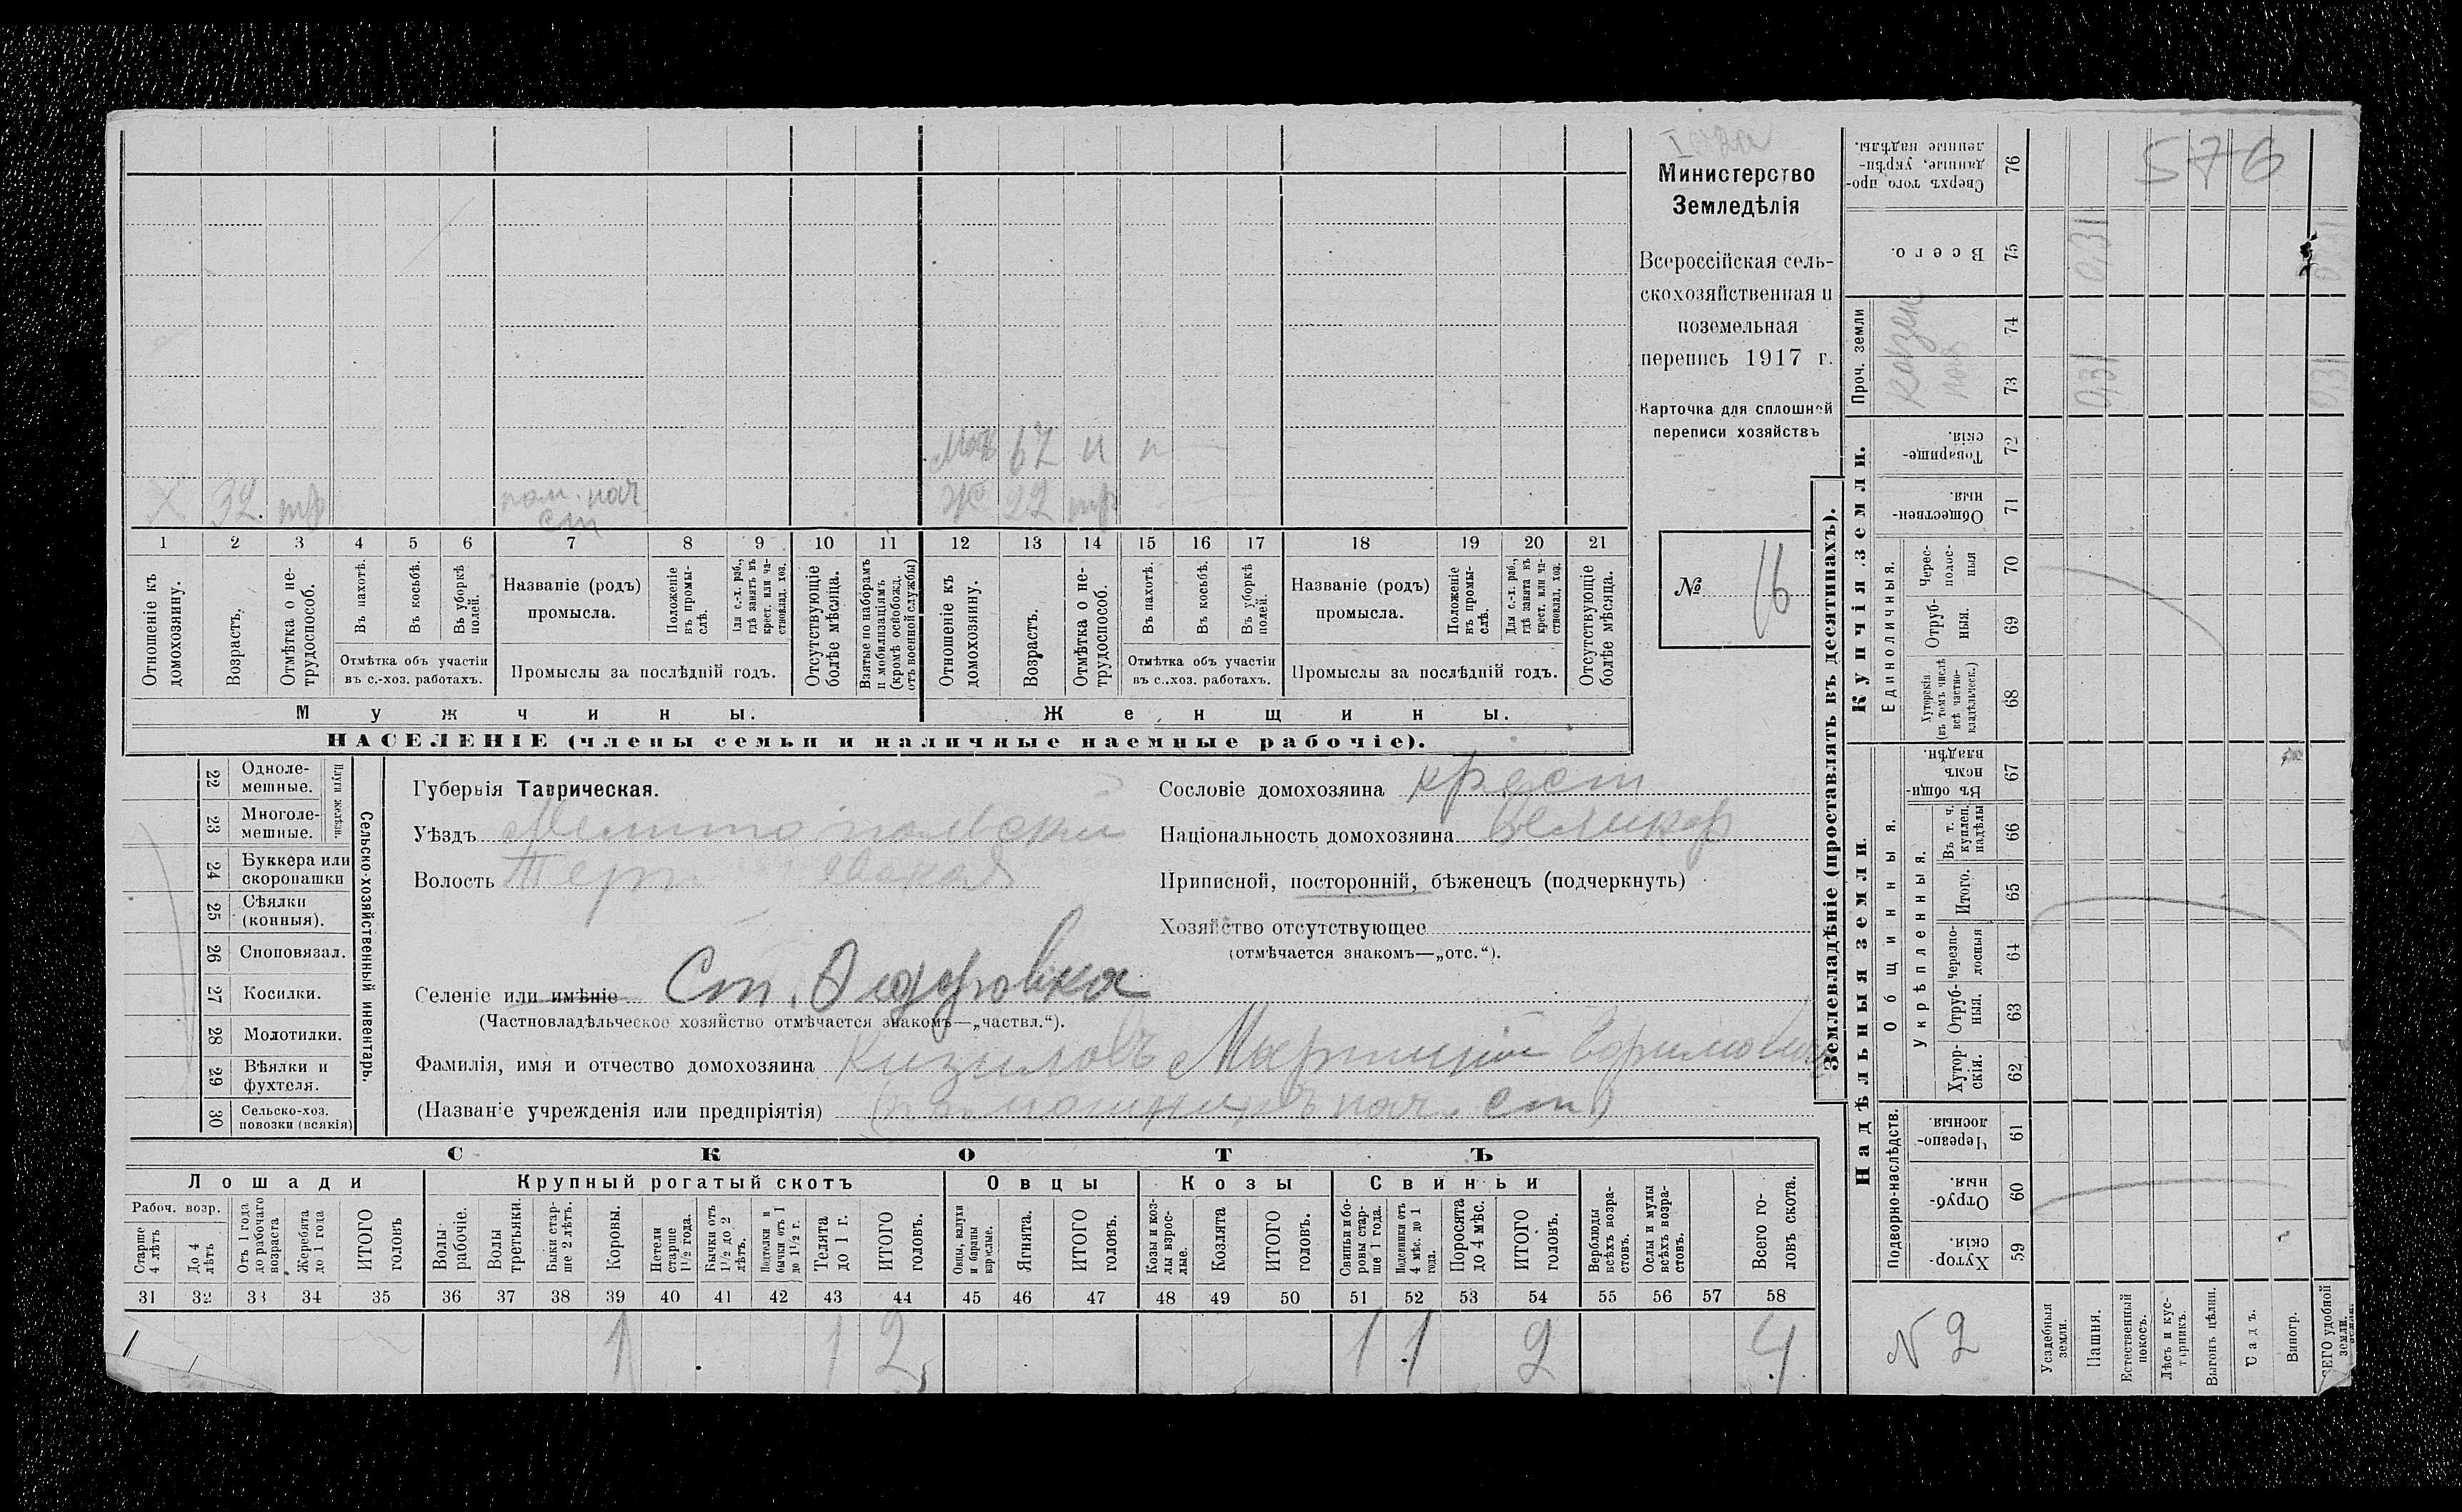 576
Министерство
Земледѣлія
Всероссійская сель-
скохозяйственная и
поземельная
перепись 1917 г.
Карточка для сплошной
переписи хозяйствъ
№ 16
мать 67 н н
х 32 тр пом. нач
ст
ж 22 тр
1 2 3 4 5 6 7 8 9 10 11 12 13 14 15 16 17 18 19 20 21
Отношеніе къ домохозяину.
Возрастъ.
Отмѣтка о не-трудоспособ.
Въ пахотѣ.
Въ косьбѣ.
Въ уборкѣ полей.
Отмѣтка объ участіи
въ с.-хоз. работахъ.
Названіе (родъ)
промысла.
Положеніе въ промы-слѣ.
Для с.-х. раб., гдѣ занятъ въ крест. или ча-стновлад. хоз.
Промыслы за послѣдній годъ.
Отсутствующіе болѣе мѣсяца.
Взятые по наборамъ и мобилизаціямъ (кромѣ освобожд. отъ военной службы)
Отношеніе къ домохозяину.
Возрастъ.
Отмѣтка о не-трудоспособ.
Въ пахотѣ.
Въ косьбѣ.
Въ уборкѣ полей.
Отмѣтка объ участіи
въ с.-хоз. работахъ.
Названіе (родъ)
промысла.
Положеніе въ промы-слѣ.
Для с.-х. раб., гдѣ занята въ крест. или ча-стновлад. хоз.
Промыслы за послѣдній годъ.
Отсутствующіе болѣе мѣсяца.
Мужчины.
Женщины.
НАСЕЛЕНІЕ (члены семьи и наличные наемные рабочіе).
Сельско-хозяйственный инвентарь.
Плуги желѣзн.
22 Одноле-мешные.
23 Многоле-мешные.
24 Буккера или скоропашки
25 Сѣялки (конныя).
26 Сноповязал.
27 Косилки.
28 Молотилки.
29 Вѣялки и фухтеля.
30 Сельско-хоз. повозки (всякія)
Губернія Таврическая.
Уѣздъ Мелитопольскій
Волость
Сословіе домохозяина крест
Національность домохозяина великор
Приписной, посторонній, бѣженецъ (подчеркнуть)
Хозяйство отсутствующее
(отмѣчается знакомъ—„отс.“).
Селеніе или имѣніе Ст. Федоровка
(Частновладѣльческое хозяйство отмѣчается знакомъ—„частвл.“).
Фамилія, имя и отчество домохозяина Кизиловъ
(Названіе учрежденія или предпріятія) (помощникъ нач. ст)
СКОТЪ
Лошади
Крупный рогатый скотъ
Овцы
Козы
Свиньи
Рабоч. возр.
Старше 4 лѣтъ
До 4 лѣтъ
Отъ 1 года до рабочаго возраста
Жеребята до 1 года
ИТОГО головъ
Волы рабочіе.
Волы третьяки.
Быки стар-ше 2 лѣтъ.
Коровы.
Нетели старше 1½ года.
Бычки отъ 1½ до 2 лѣтъ.
Подтелки и бычки отъ 1 до 1½ г.
Телята до 1 г.
ИТОГО головъ.
Овцы, валухи и бараны взрослые.
Ягнята.
ИТОГО головъ.
Козы и коз-лы взрос-лые.
Козлята
ИТОГО головъ.
Свиньи и бо-ровы стар-ше 1 года.
Подсвинки отъ 4 мѣс. до 1 года.
Поросята до 4 мѣс.
ИТОГО головъ.
Верблюды всѣхъ возра-стовъ.
Ослы и мулы всѣхъ возра-стовъ.
Всего го-ловъ скота.
31 32 33 34 35 36 37 38 39 40 41 42 43 44 45 46 47 48 49 50 51 52 53 54 55 56 57 58
1 1 2 1 1 2 4
Землевладѣніе (проставлять въ десятинахъ).
Надѣльныя земли.
Купчія земли.
Проч. земли
Подворно-наслѣдств.
Общинныя.
Укрѣпленныя.
Единоличныя.
59 Хутор-скія.
60 Отруб-ныя.
61 Черезпо-лосныя
62 Хутор-скія.
63 Отруб-ныя.
64 Черезпо-лосныя
65 Итого.
66 Въ т. ч. куплен. надѣлы
67 Въ общи-номъ владѣн.
68 Хуторскія (въ томъ числѣ всѣ частно-владѣльческ.)
69 Отруб-ныя.
70 Черес-полос-ныя
71 Обществен-ныя.
72 Товарище-скія.
73
74
75 Всего.
76 Сверхъ того про-данные, укрѣп-ленные надѣлы.
казен
0,31
0,31
0,31
N 2
Усадебныя земли.
Пашня.
Естественный покосъ.
Лѣсъ и кус-тарникъ.
Выгонъ цѣлин.
Садъ.
Виногр.
ВСЕГО удобной земли.